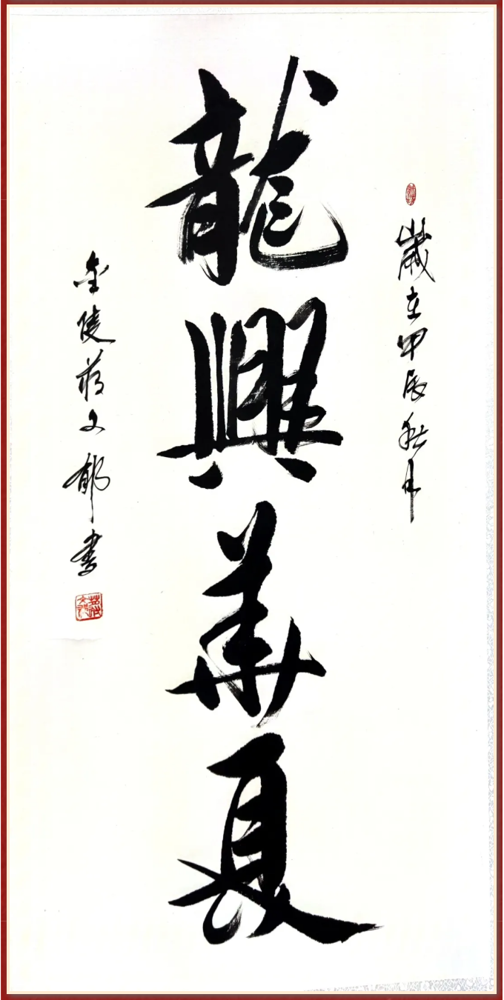 歲在甲辰秋月
龍興華夏
金陵蔣文郁書